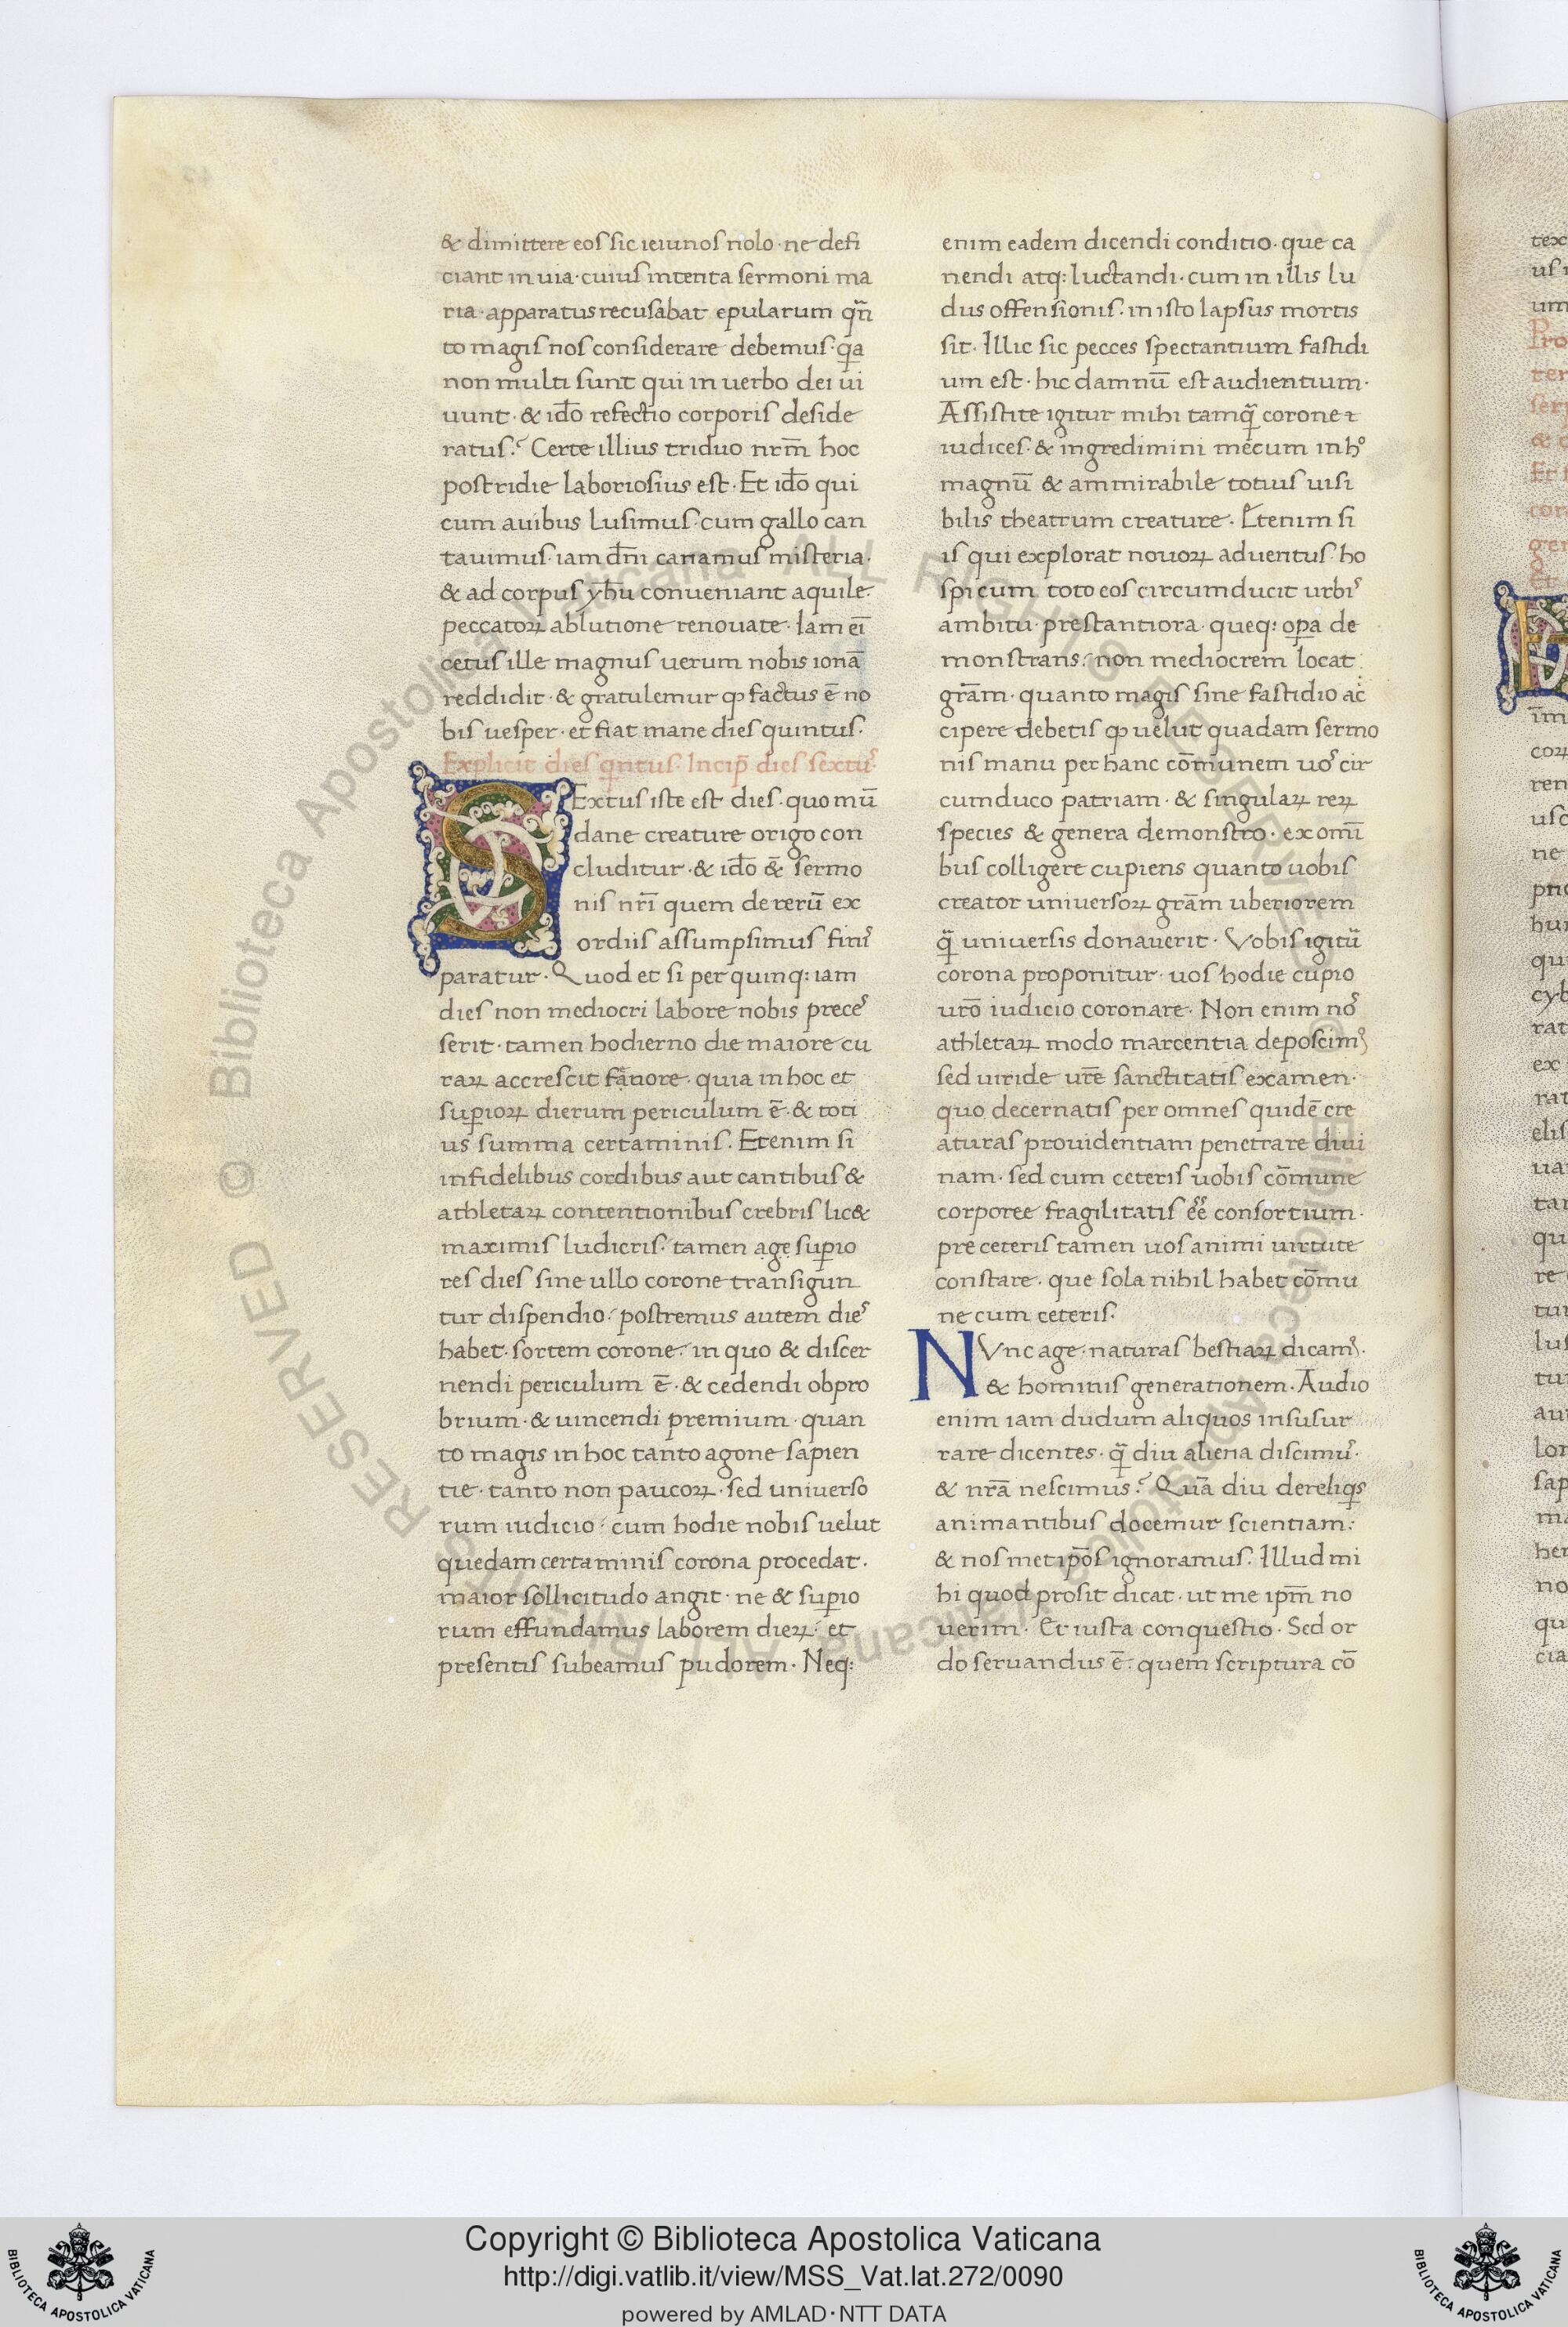 & dimittere eos sic ieiunos nolo · ne defi
ciant in uia · cuius intenta sermoni ma
ria · apparatus recusabat epularum qn̄
to magis nos considerare debemus · q̄a
non multi sunt qui in uerbo dei ui
uunt · & id̄o refectio corporis deside
ratus? Certe illius triduo nr̄m̄ hoc
postridie laboriosius est · Et id̄o qui
cum auibus lusimus · cum gallo can
tauimus · iam dn̄i canamus misteria ·
& ad corpus yh̄u conueniant aquile ·
peccatoꝝ ablutione renouate · Iam ei̅
cetus ille magnus uerum nobis ionā
reddidit · & gratulemur ꝙ factus ē no
bis uesper · et fiat mane dies quintus ·
Explicit dies qntus · Incip̄ dies sextus ·
SExtus iste est dies · quo mū
dane creature origo con
cluditur · & id̄o &̄ sermo
nis nr̄i quem de rerū ex
ordiis assumpsimus finis
paratur · Quod et si per quinq: iam
dies non mediocri labore nobis preces
serit · tamen hodierno die maiore cu
raꝝ accrescit fānore · quia in hoc et
sup̱ioꝝ dierum periculum ē · & toti
us summa certaminis · Etenim si
in fidelibus cordibus aut cantibus &
athletaꝝ contentionibus crebris lic&
maximis ludicris · tamen age sup̱io
res dies sine ullo corone transigun
tur dispendio · postremus autem dies
habet · sortem corone · in quo & discer
nendi periculum ē · & cedendi obpro
brium · & uincendi premium · quan
to magis in hoc tanto agone sapien
tie · tanto non paucoꝝ · sed uniuerso
rum iudicio · cum hodie nobis uelut
quedam certaminis corona procedat ·
maior sollicitudo angit · ne & sup̱io
rum effundamus laborem dieꝝ · et
presentis subeamus pudorem · Neq:
enim eadem dicendi conditio · que ca
nendi atq: luctandi · cum in illis lu
dus offensionis · in isto lapsus mortis
sit · Illic sic pecces spectantium fastidi
um est · hic damnū est audientium ·
Assistite igitur mihi tamq̄ corone
iudices · & ingredimini mecum in hº
magnū & ammirabile totius uisi
bilis theatrum creature · Etenim si
is qui explorat nouoꝝ aduentus · ho
spicum toto eos circumducit urbis
ambitu · prestantiora queq: op̱a de
monstrans · non mediocrem locat
gr̄am · quanto magis sine fastidio ac
cipere debetis ꝙ uelut quadam sermo
nis manu per hanc com̄unem uos cir
cumduco patriam · & singulaꝝ reꝝ
species & genera demonstro · ex omī
bus colligere cupiens quanto uobis
creator uniuersoꝝ gr̄am uberiorem
q̄ uniuersis donauerit · Vobis igitū
corona proponitur · uos hodie cupio
ur̄o iudicio coronare · Non enim nos
athletaꝝ modo marcentia deposcimꝰ
sed uiride ur̄e sanctitatis examen ·
quo decernatis per omnes quidē cre
aturas prouidentiam penetrare diui
nam · sed cum ceteris uobis com̄une
corporee fragilitatis eē consortium ·
pre ceteris tamen uos animi uirtute
constare · que sola nihil habet com̄u
ne cum ceteris ·
NVnc age · naturas bestiaꝝ dicamꝰ ·
& hominis generationem · Audio
enim iam dudum aliquos insusur
rare dicentes · q̄ diu aliena discimus ·
& nr̄a nescimus? Quā diu de reliqis
animantibus docemur scientiam:
& nosmetip̄os ignoramus · Illud mi
hi quod prosit dicat · ut me ip̄m̄ no
uerim · Et iusta conquestio · Sed or
do seruandus ē · quem scriptura cō
Copyright © Biblioteca Apostolica Vaticana
http://digi.vatlib.it/view/MSS_Vat.lat.272/0090
powered by AMLAD·NTT DATA
BIBLIOTECA APOSTOLICA VATICANA
BIBLIOTECA APOSTOLICA VATICANA